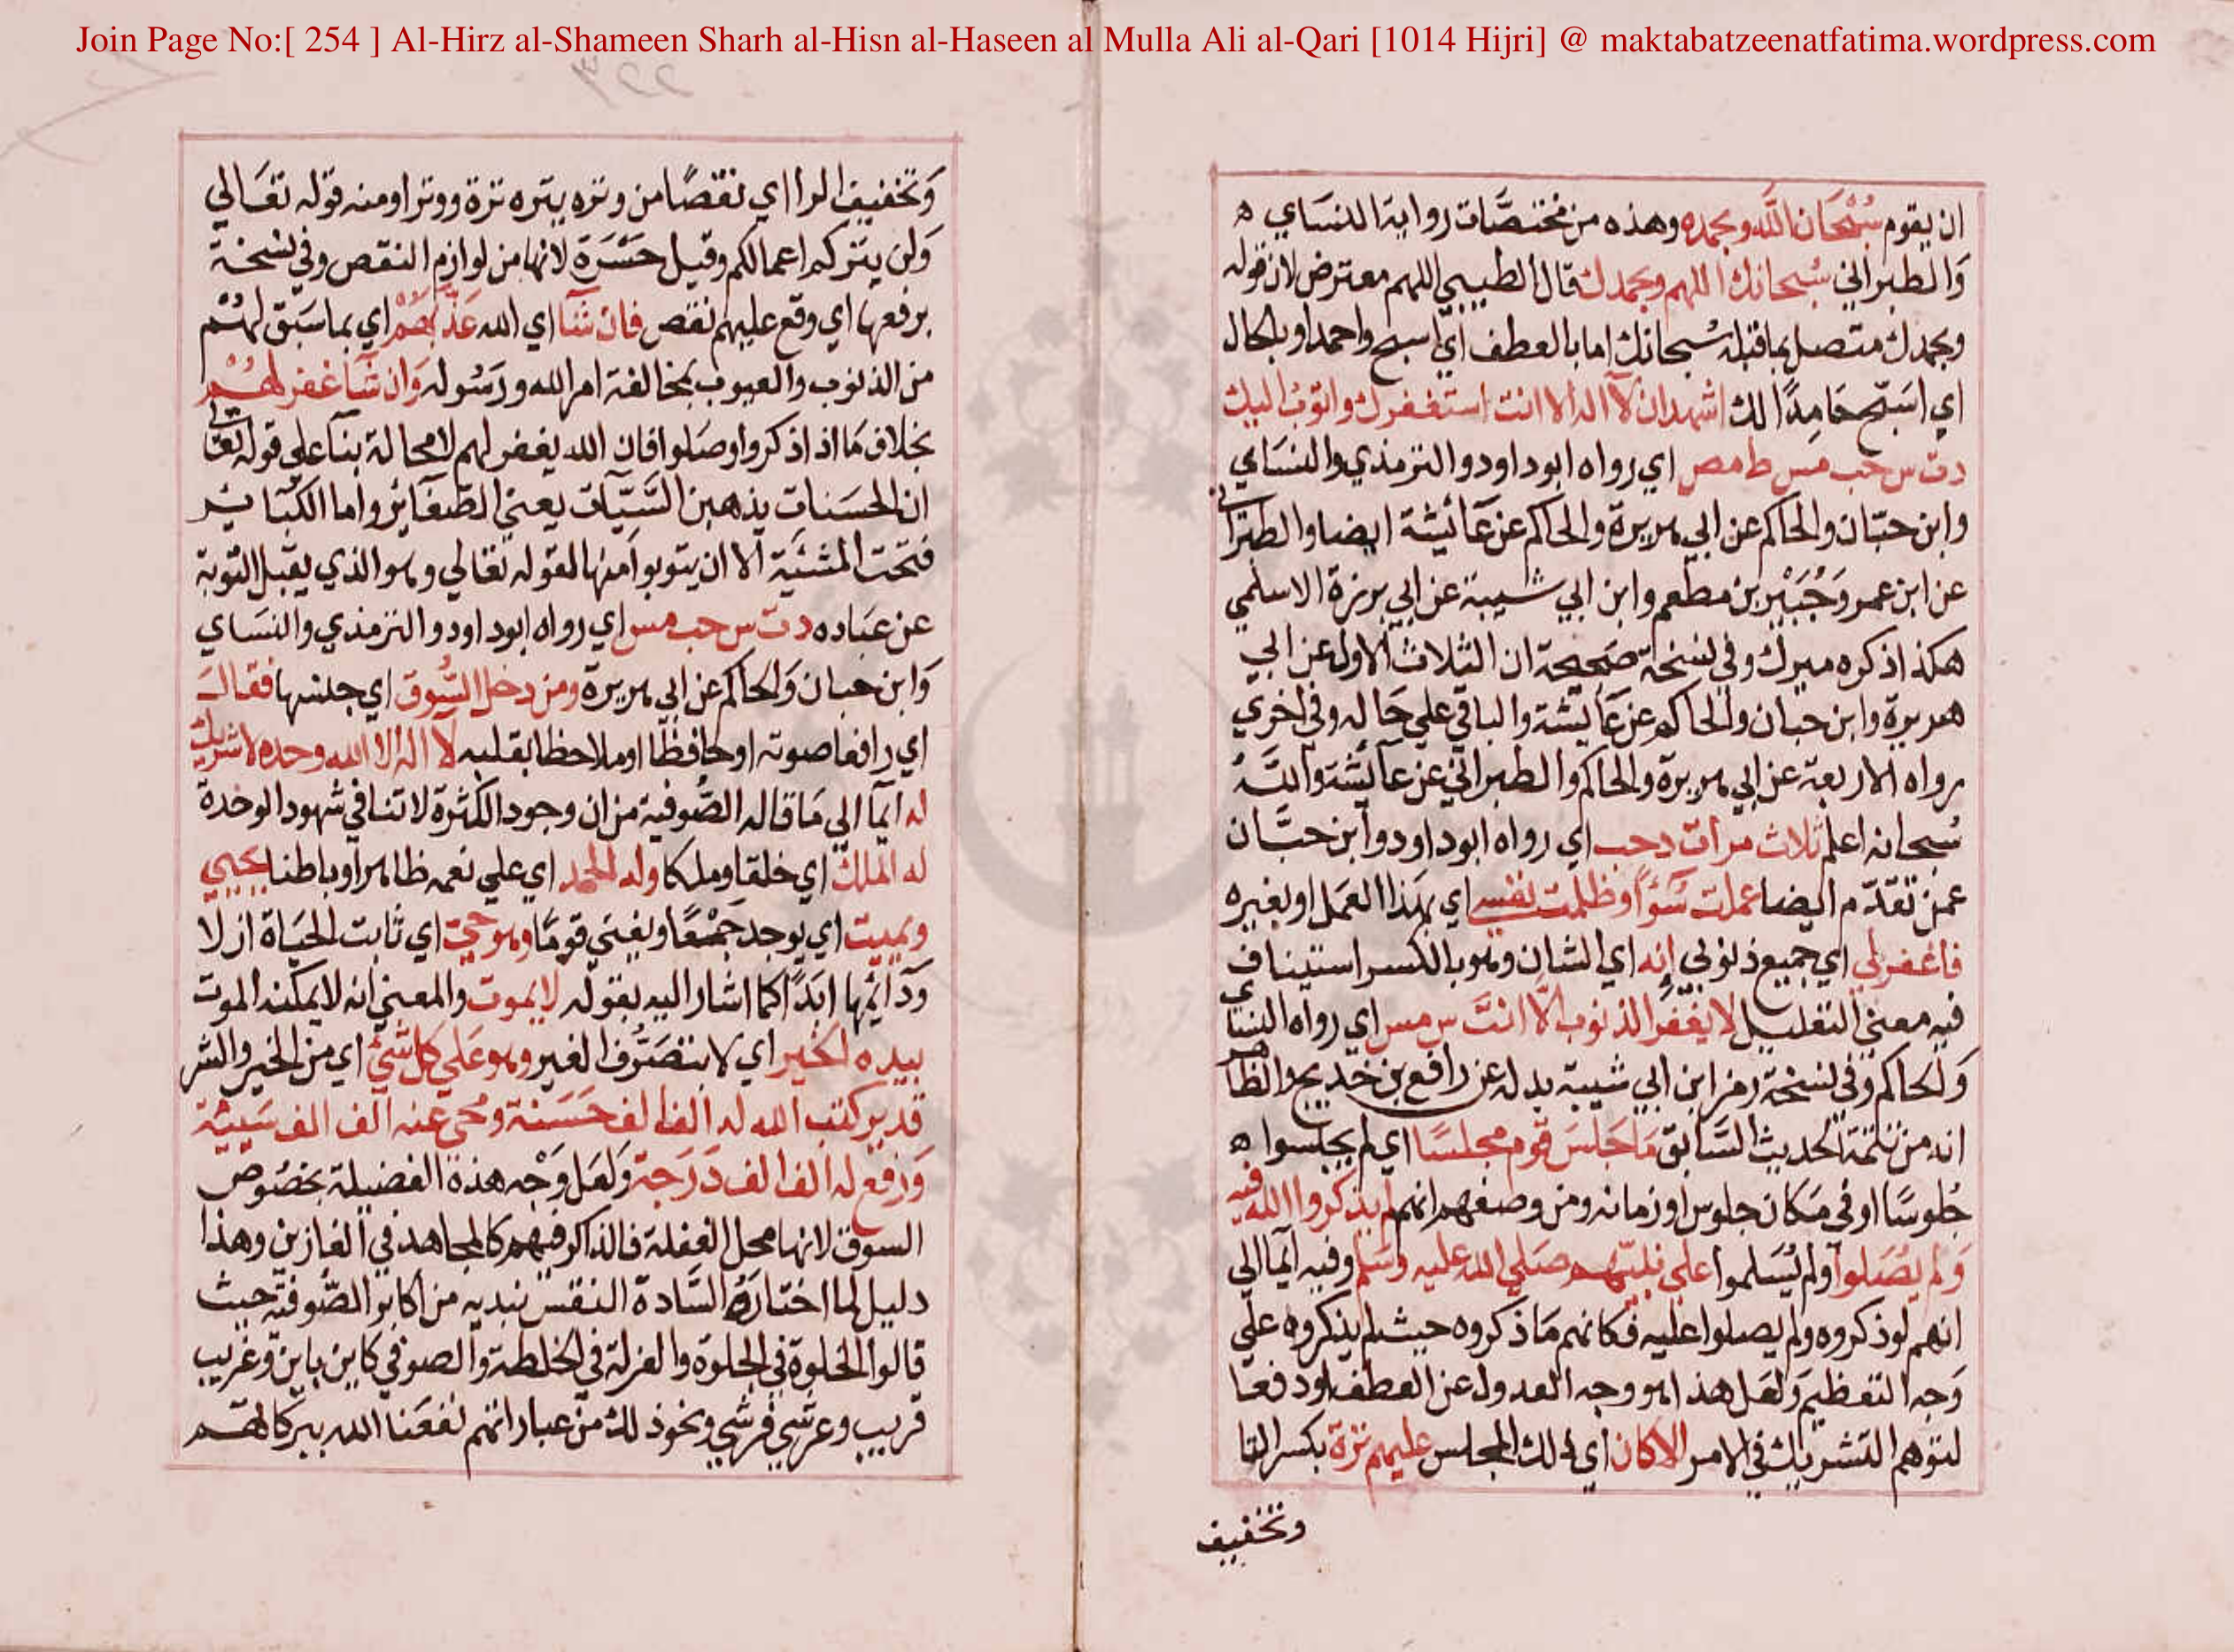 Join Page No:[ 254 ] Al-Hirz al-Shameen Sharh al-Hisn al-Haseen al Mulla Ali al-Qari [1014 Hijri] @ maktabatzeenatfatima.wordpress.com
ان يقوم سُبْحَان اللَّه وبحمده وهذه من مختصَّات رواية النسَاي ه
وَالطبراني سُبحانك اللهم وبحمدك قال الطيبي اللهم معترض لان قوله
وبحمدك متصل بما قبله سُبحانك اما بالعطف اي اسبح واحمد او بالحال
اي اسَبّح حَامِدًا لك اشهد ان لا اله الا انت استغفرك واتوبُ اليك
دت س حب مس ط مص اي رواه ابوداود والترمذي والنسَاي
وابن حبّان والحاكم عن ابي هريرة والحاكم عن عَائيشة ايضا والطبراني
عن ابن عمر وَجُبَيْر بن مطعم وابن ابي شيبة عن ابي برزة الاسلمي
هكذا ذكره ميرك وفي نسخة صَحيحة ان الثلاث الاول عن ابي
هريرة وابن حبان والحاكم عن عَائيشة والباقي علي حَاله وفي اخري
رواه الاربعة عن ابي هريرة والحاكم والطبراني عن عائشة واللَّهُ
سُبحانه اعلم ثلاث مرات د حب اي رواه ابوداود وابن حبَّان
عمن تقدّم ايضا عملت سُوًا وظلمت نفسي اي بهذا العَمل او بغيره
فاغفرلي اي جميع ذنوبي إنه اي الشان وهو بالكسر استيناف
فيه معني التعليل لا يغفر الذنوب الّا انتَ س مس اي رواه النسَاي
وَالحاكم وفي نسخة رمز ابن ابي شيبة بدله عن رافع بن خديج والظاهر
انه من تتمة الحديث السَابق مَا جَلسَ قوم مجلسًا اي لم يجلسوا ه
جُلوسًا او في مَكان جلوس او زمانه ومن وصفهم انهم لم يذكروا الله فيه
وَلم يصَلوا ولم يُسَلموا علي نبيّهم صَلي الله عليه وسَلم وفيه ايما الي
انهم لو ذكروه ولم يصلوا عليه فكانهم مَا ذكروه حيث لم يذكروه علي
وَجه التعظيم وَلعَل هذا هو وجه العدول عن العطف او دفعا
لتوهم التشريك في الامر الا كان اي ذلك المجلس عليهم ترة بكسر التا
وتخفيف
وَتخفيف الرا اي نقصًا من وتره يتره ترة ووترا ومنه قوله تعَالي
وَلن يتركم اعمالكم وقيل حَسْرَة لانها من لوازم النقص وفي نسخة
برفعها اي وقع عليهم نقص فان شَا اي الله عَذّبَهُمْ اي بما سَبق لَهُمْ
من الذنوب والعيوب بمخالفة امر الله ورَسُوله وَان شَا غفر لهُمْ
بخلاف مَا اذا ذكروا وصَلوا فان الله يغفر لهم لا محالة بنا علي قوله تعالي
ان الحسَنات يذهبن السَّيّات يعني الصّغاير واما الكبَاير
فتحت المشيّة الا ان يتوبوا منها لقوله تعَالي وهو الذي يقبل التوبة
عن عبَاده دت س حب مس اي رواه ابوداود والترمذي والنسَاي
وَابن حبان وَالحاكم عن ابي هريرة ومن دخل السُّوق اي جنسها فقالَ
اي رافعا صوته او حافظا او ملاحظا بقلبه لا اله الا الله وحده لا شريك
له ايما الي مَا قاله الصُّوفية من ان وجود الكثرة لا تنافي شهود الوحدة
له الملك اي خلقا وملكا وله الحَمد اي علي نعمه ظاهرا وباطنا يحيي
ويميت اي يوجد جَمْعًا ويفني قومًا وهو حيّ اي ثابت الحيَاة ازلا
ودَائمها ابَدًا كما اشار اليه بقوله لا يموت والمعني انه لا يمكنه الموت
بيده الخير اي لا بتصَرُّف الغير وهو عَلي كل شيْ اي من الخير والشر
قدير كتب الله له الف الف حَسَنة ومحي عنه الف الف سَيئة
وَرَفع له الف الف دَرَجة وَلعَل وَجْه هذة الفضيلة بخصُوص
السوق لانها محل الغفلة فالذاكر فيهم كالمجاهد في الغازين وهذا
دليل لما اختارهُ السَّادة النقشبنديه من اكابر الصُّوفيّة حيث
قالوا الخلوة في الجلوة والعزلة في الخلطة والصوفي كاين باين وغريب
قريب وعرشي فرشي ونحو ذلك من عباراتهم نفعَنا الله ببركاتهم